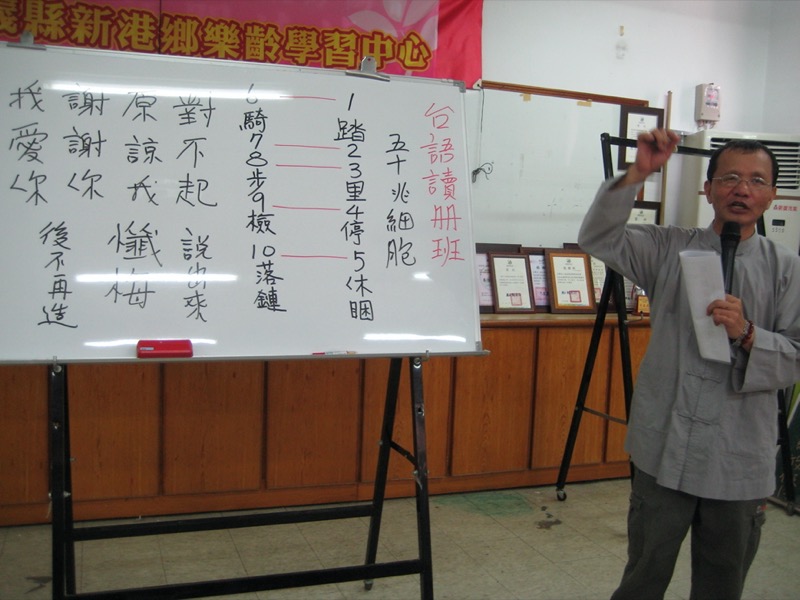 義縣新港鄉樂齡學習中心
台語讀册班
五十兆細胞
1踏23里4停5休睏
6騎78步9檢10落鏈
對不起
原諒我
謝謝你
我愛你
說出來
懺悔
後不再造